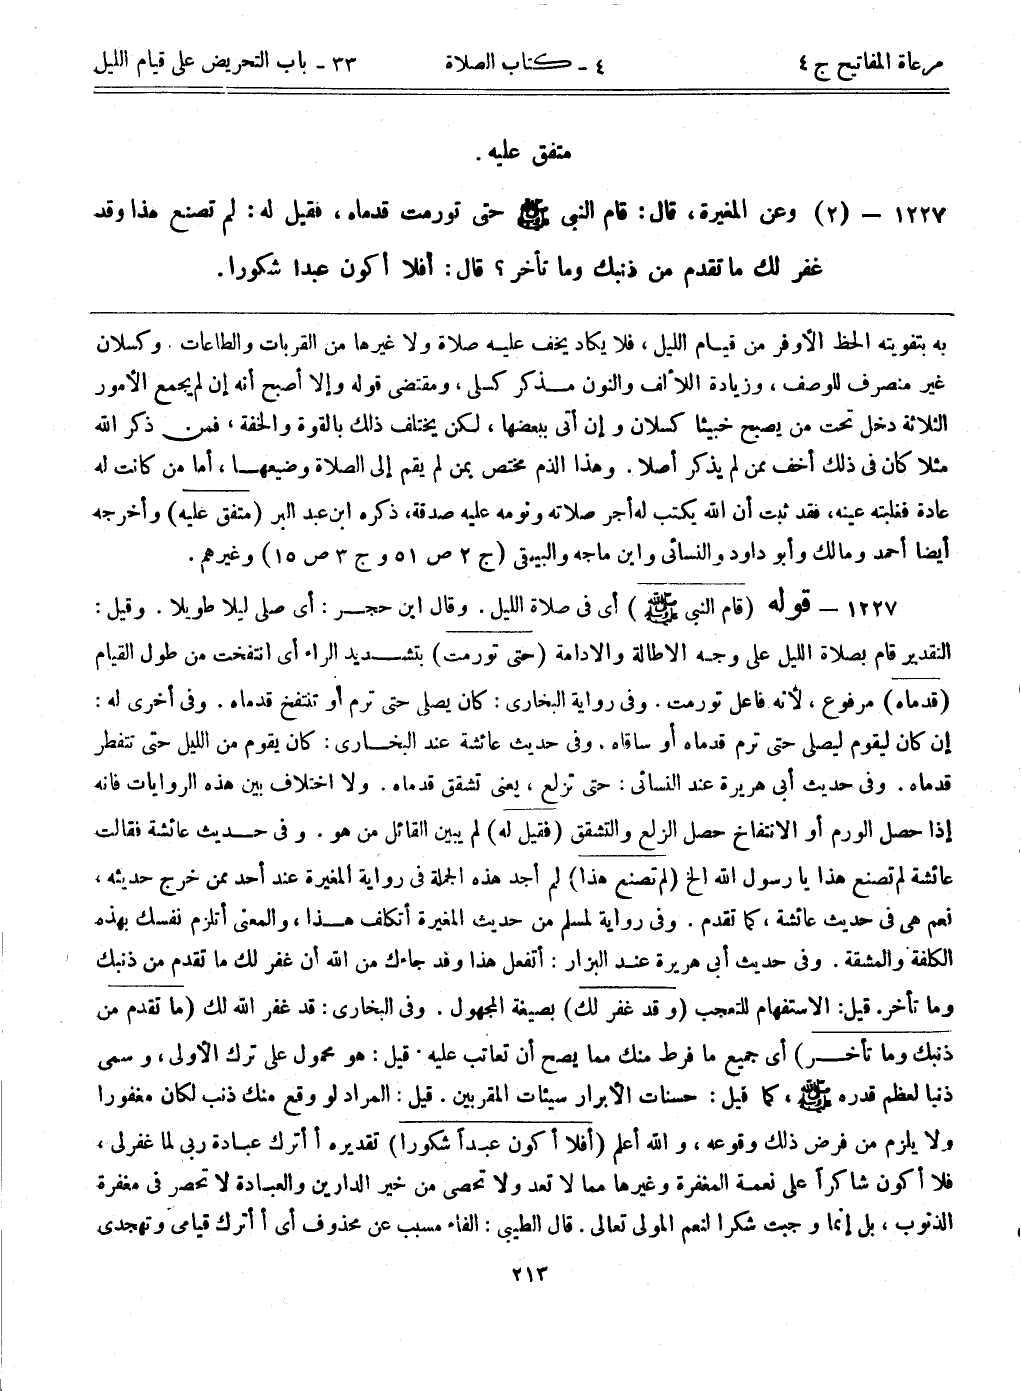 مرعاة المفاتيح ج ٤ ٤ - كتاب الصلاة ٣٣ - باب التحريض على قيام الليل
متفق عليه .
١٢٢٧ – (٢) وعن المغيرة، قال: قام النبى ﷺ حتى تورمت قدماه، فقيل له: لم تصنع هذا وقد
غفر لك ما تقدم من ذنبك وما تأخر؟ قال: أفلا أكون عبدا شكورا.
به بتفويته الحظ الأوفر من قيام الليل، فلا يكاد يخف عليه صلاة ولا غيرها من القربات والطاعات . وكسلان
غير منصرف للوصف، وزيادة الألف والنون مذكر كسلى، ومقتضى قوله وإلا أصبح أنه إن لم يجمع الأمور
الثلاثة دخل تحت من يصبح خبيثا كسلان و إن أتى ببعضها، لكن يختلف ذلك بالقوة والخفة، فمن ذكر الله
مثلا كان فى ذلك أخف ممن لم يذكر أصلا . وهذا الذم مختص بمن لم يقم إلى الصلاة وضيعها، أما من كانت له
عادة فغلبته عينه، فقد ثبت أن الله يكتب له أجر صلاته ونومه عليه صدقة، ذكره ابن عبد البر (متفق عليه) وأخرجه
أيضا أحمد ومالك وأبو داود والنسائى وابن ماجه والبيهقى (ج ٢ ص ٥١ و ج ٣ ص ١٥) وغيرهم .
١٢٢٧ – قوله (قام النبى ﷺ) أى فى صلاة الليل . وقال ابن حجر : أى صلى ليلا طويلا . وقيل :
التقدير قام بصلاة الليل على وجه الاطالة والادامة (حتى تورمت) بتشديد الراء أى انتفخت من طول القيام
(قدماه) مرفوع، لأنه فاعل تورمت . وفى رواية البخارى : كان يصلى حتى ترم أو تنتفخ قدماه . وفى أخرى له :
إن كان ليقوم ليصلى حتى ترم قدماه أو ساقاه . وفى حديث عائشة عند البخارى : كان يقوم من الليل حتى تتفطر
قدماه . وفى حديث أبى هريرة عند النسائى : حتى تزلع، يعنى تشقق قدماه . ولا اختلاف بين هذه الروايات فانه
إذا حصل الورم أو الانتفاخ حصل الزلع والتشقق (فقيل له) لم يبين القائل من هو . و فى حديث عائشة فقالت
عائشة لم تصنع هذا يا رسول الله الخ (لم تصنع هذا) لم أجد هذه الجملة فى رواية المغيرة عند أحد ممن خرج حديثه،
نعم هى فى حديث عائشة، كما تقدم . وفى رواية لمسلم من حديث المغيرة أتكلف هذا، والمعنى أتلزم نفسك بهذه
الكلفة والمشقة . وفى حديث أبى هريرة عند البزار : أتفعل هذا وقد جاءك من الله أن غفر لك ما تقدم من ذنبك
وما تأخر. قيل: الاستفهام للتعجب (و قد غفر لك) بصيغة المجهول . وفى البخارى : قد غفر الله لك (ما تقدم من
ذنبك وما تأخر) أى جميع ما فرط منك مما يصح أن تعاتب عليه . قيل : هو محمول على ترك الأولى، و سمى
ذنبا لعظم قدره ﷺ، كما قيل : حسنات الأبرار سيئات المقربين . قيل : المراد لو وقع منك ذنب لكان مغفورا
ولا يلزم من فرض ذلك وقوعه، و الله أعلم (أفلا أكون عبداً شكورا) تقديره أ أترك عبادة ربى لما غفر لى،
فلا أكون شاكراً على نعمة المغفرة وغيرها مما لا تعد ولا تحصى من خير الدارين والعبادة لا تحصر فى مغفرة
الذنوب، بل إنما و جبت شكرا لنعم المولى تعالى . قال الطيبى : الفاء مسبب عن محذوف أى أ أترك قيامى وتهجدى
٢١٣